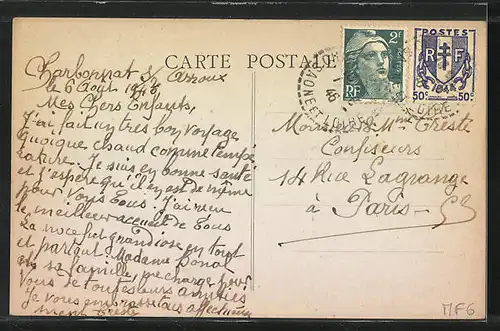 CARTE POSTALE
Charbonnat s/ Arroux
le 6 Août 1946
Mes Chers Enfants,
J'ai fait un tres bon voyage
quoique chaud comme tempé
rature. Je suis en bonne santé
et j'espère qu'il en est de même
pour Vous tous. J'ai reçu
le meilleur accueil de tous
La noce fut grandiose en tout
et partout. Madame Bonat
et sa famille, me charge pour
Vous de toutes leurs amitiés
Je vous embrasse tous affectueuse
ment Creste
2F
RF
POSTES
RF
50c 50c
SAONE ET LOIRE
Monsieur & Mme Creste
Confiseurs
14 Rue Lagrange
à Paris
MF6